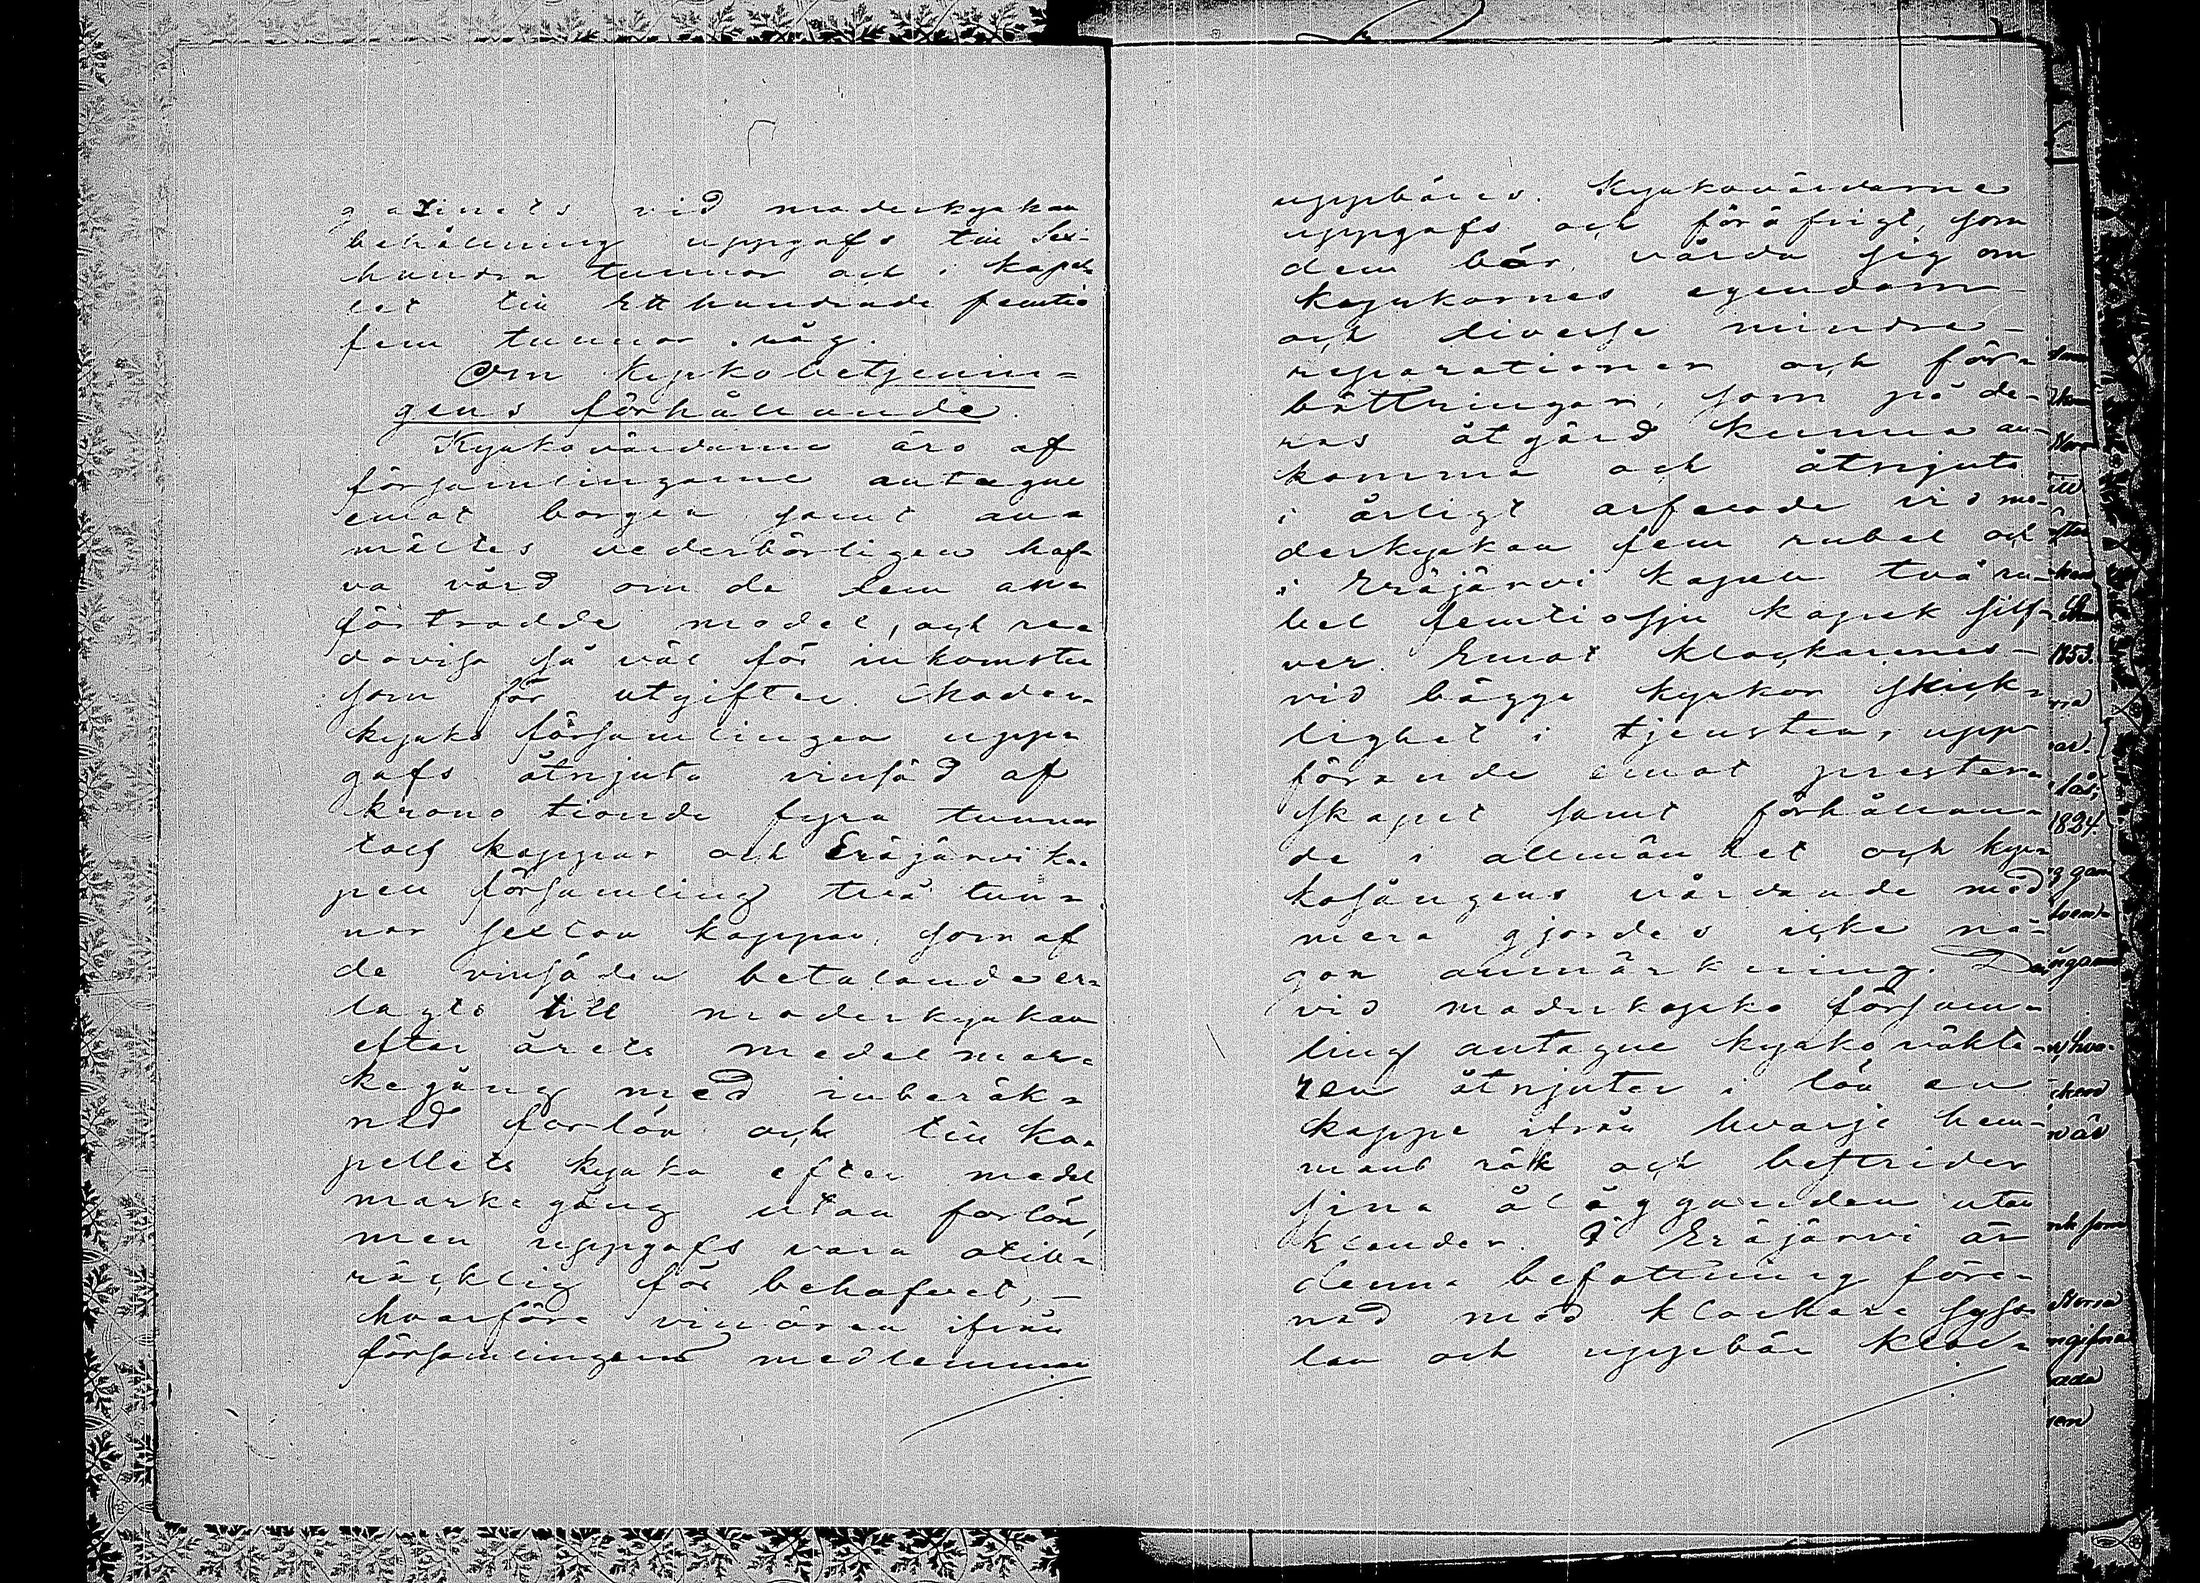 gazinets vid moderkyrkan
behållning uppgafs till Sex-
hundra tunnor och i kapel-
let till Ett hundrade femtio
fem tunnor råg.
Om kyrkobetjenin-
gens förhållande.
Kyrkovärdarne äro af
församlingarne antagne
emot borgen samt an-
mältes vederbörligen haf-
va vård om de dem an-
förtrodde medel, och re-
dovisa så väl för inkomster
som för utgifter. Moder-
kyrko församlingen upp-
gafs åtnjuta vinsäd af
krono tionde fyra tunnor
tolf kappar och Eräjärvi ka-
pell församling två tun-
nor sexton kappar, som af
de vinsäden betalande er-
lagts till moderkyrkan
efter årets medel mar-
kegång med inberäk-
nad forlön och till ka-
pellets kyrka efter medel
markegång utan forlön,
men uppgafs vara otill-
räcklig för behofvet, –
hvarföre vinören ifrån
församlingens medlemmar
uppbäres. Kyrkovärdarne
uppgafs och för öfrigt, som
dem bör, vårda sig om
kyrkornes egendom
och diverse mindre
reparationer och för-
bättringar, som på de-
ras åtgärd kunna an-
komma och åtnjuta
i årligt arfvode vid mo-
derkyrkan fem rubel och
i Eräjärvi kapell två ru-
bel femtiosju kopek silf-
ver. Emot klockarenes
vid bägge kyrkor skick-
lighet i tjensten, upp-
förande emot prester-
skapet samt förhållan-
de i allmänhet och kyr-
kosångens vårdande med
mera gjordes icke nå-
gon anmärkning. Den
vid moderkyrko försam-
ling antagne kyrkoväkta-
ren åtnjuter i lön en
kappe ifrån hvarje hem-
mans rök och bestrider
sina åligganden utan
klander. I Eräjärvi är
denna befattning före-
nad med klockare syss-
lan och uppbär kloc-
1853.
1824